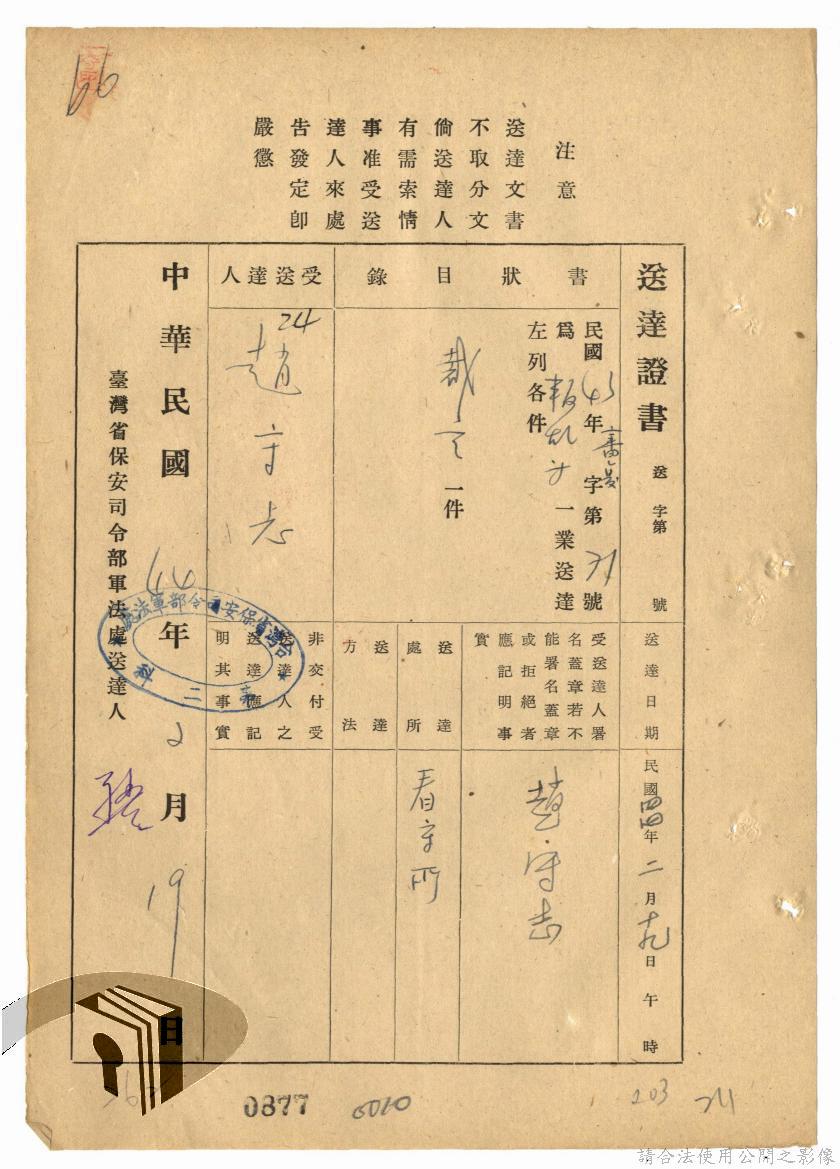 注意
送達文書
不取分文
倘送達人
有需索情
事准受送
達人來處
告發定卽
嚴懲
送達證書 送 字第 號
送達日期
民國四四年二月十九日 午 時
書狀目錄
民國43年審復字第71號
爲叛亂
一業送達
左列各件
裁定一件
受送達人署
名蓋章若不
能署名蓋章
或拒絕者
應記明事
實
趙守志
送達處所
看守所
送達方法
受送達人
24
趙守志
非交付受
送達人之
送達應記
明其事實
中華民國44年2月19日
臺灣省保安司令部軍法處送達人
0877
0010
203
請合法使用公開之影像